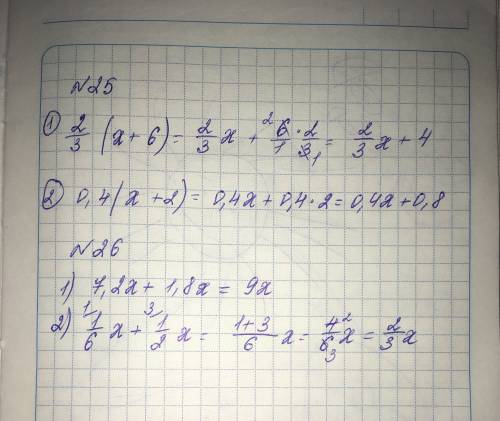 №25
① 2/3 (x + 6) = 2/3 x + 6/1 · 2/3 = 2/3 x + 4
② 0,4(x + 2) = 0,4x + 0,4 · 2 = 0,4x + 0,8
№26
1) 7,2x + 1,8x = 9x
2) 1/6 x + 1/2 x = (1+3)/6 x = 4/6 x = 2/3 x